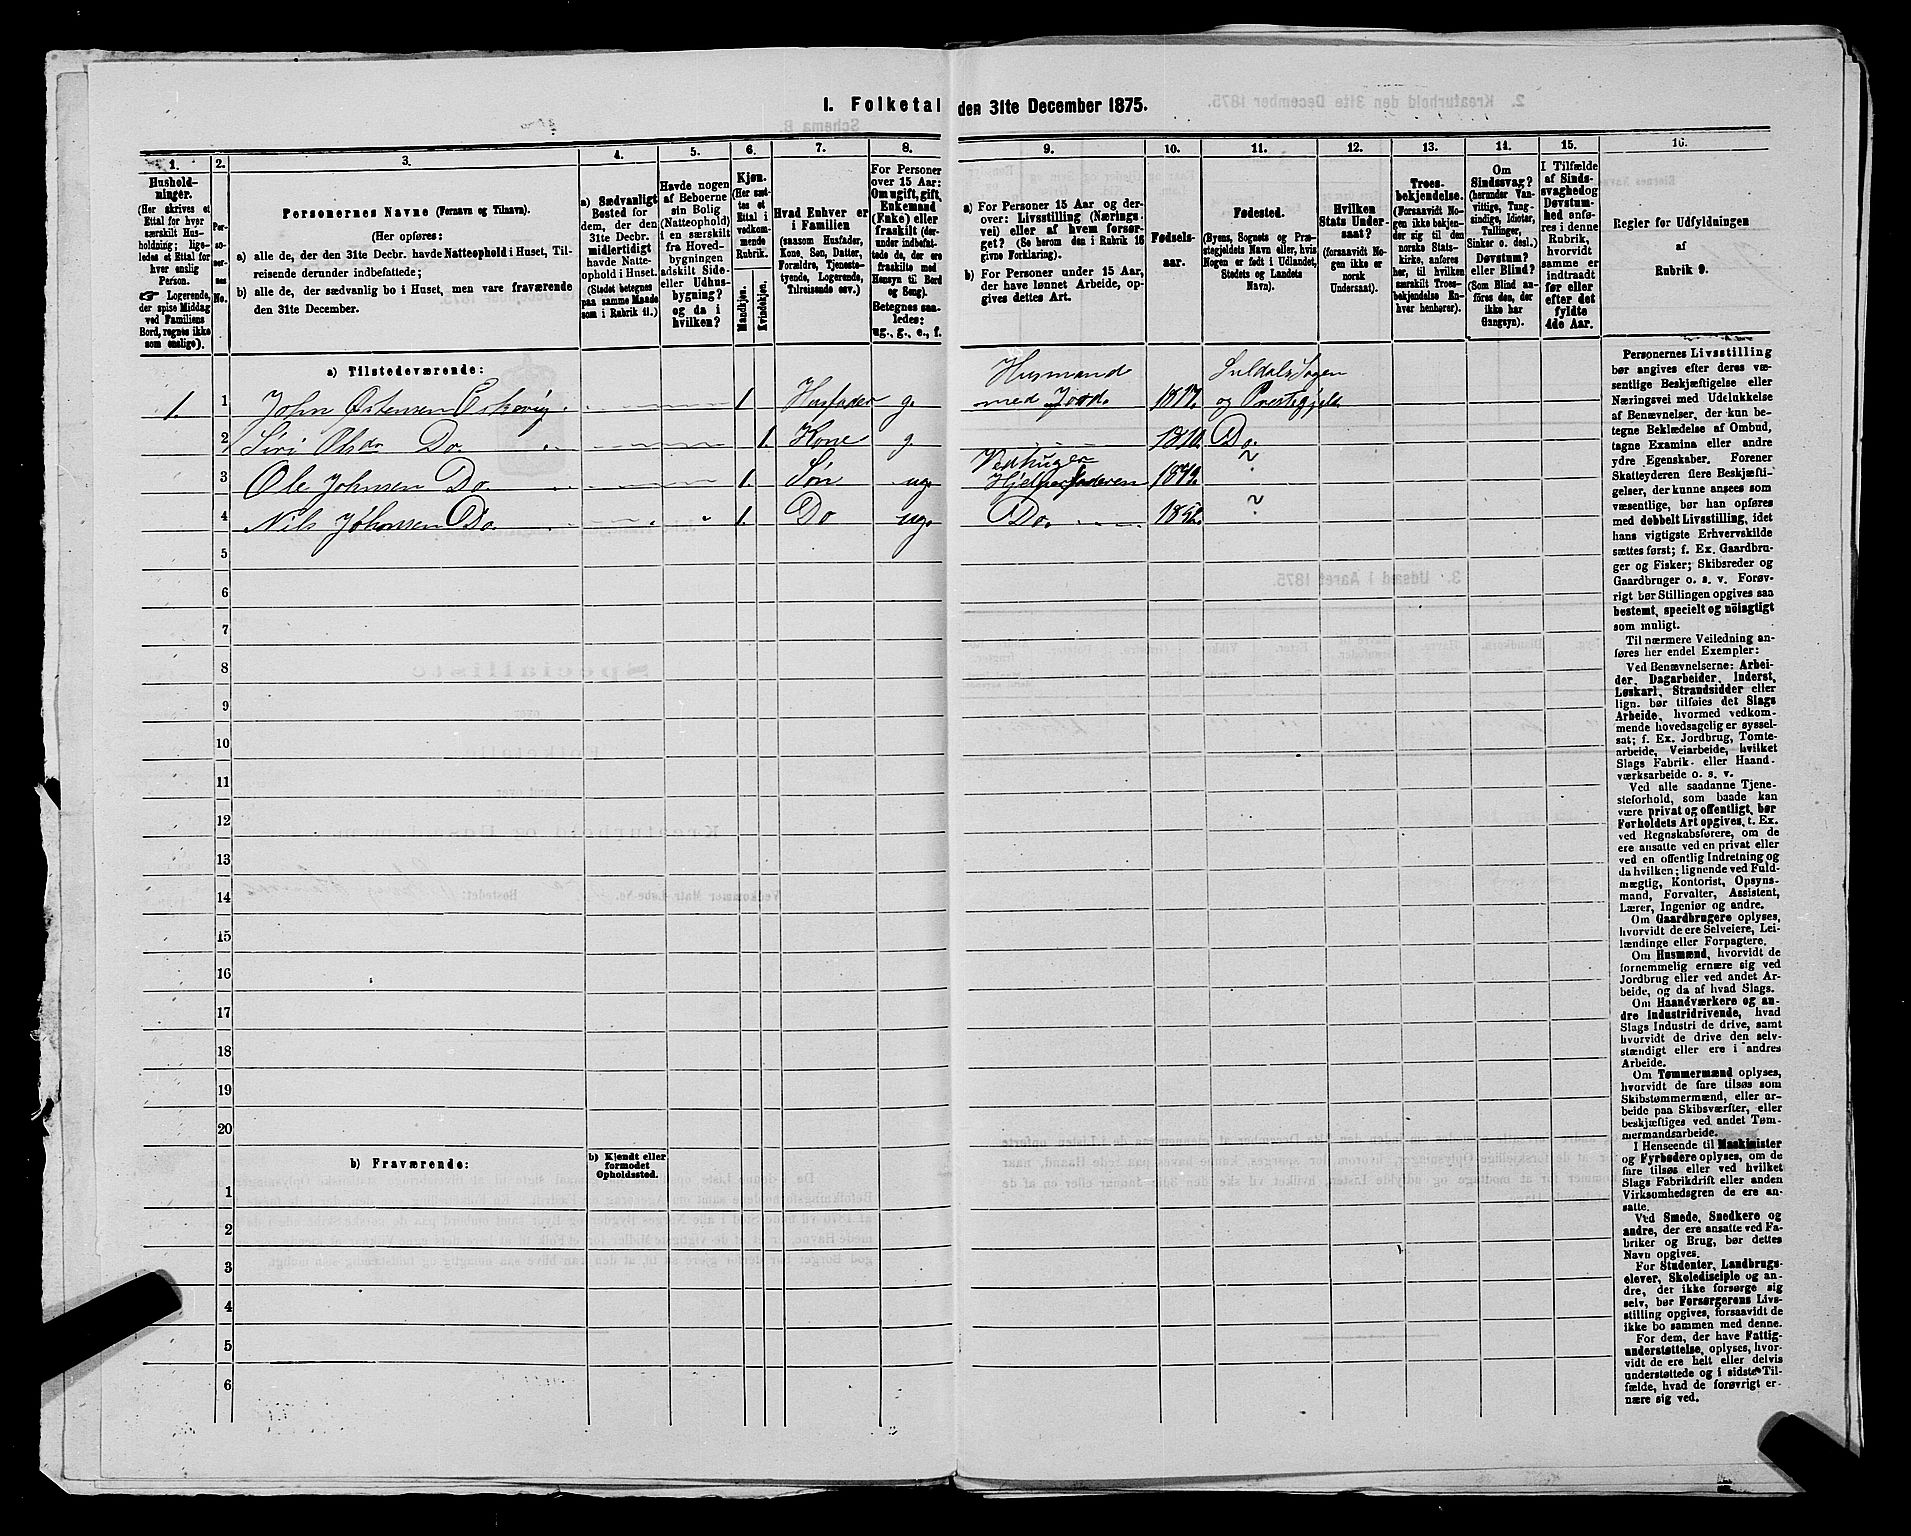 I. Folketal den 31te December 1875.
1. 2. 3. 4. 5. 6. 7. 8. 9. 10. 11. 12. 13. 14. 15. 16.
Hushold-
ninger.
(Her skrives et
Ettal for hver
særskilt Hus-
holdning; lige-
ledes et Ettal for
hver enslig
Person.
☞ Logerende,
der spise Middag
ved Familiens
Bord, regnes ikke
som enslige).
Per-
soner-
nes
No.
Personernes Navne (Fornavn og Tilnavn).
(Her opføres:
a) alle de, der den 31te Decbr. havde Natteophold i Huset, Til-
reisende derunder indbefattede;
b) alle de, der sædvanlig bo i Huset, men vare fraværende
den 31te December.
a) Sædvanligt
Bosted for
dem, der den
31te Decbr.
midlertidigt
havde Natte-
ophold i Huset.
(Stedet betegnes
paa samme Maade
som i Rubrik 11.)
Havde nogen
af Beboerne
sin Bolig
(Natteophold)
i en særskilt
fra Hoved-
bygningen
adskilt Side-
eller Udhus-
bygning?
og da i
hvilken?
Kjøn.
(Her sæt-
tes et
Ettal i
vedkom-
mende
Rubrik.
Mandkjøn.
Kvindekjøn.
Hvad Enhver er
i Familien
(saasom Husfader,
Kone, Søn, Datter,
Forældre, Tjeneste-
tyende, Logerende,
Tilreisende osv.)
For Personer
over 15 Aar:
Om ugift, gift,
Enkemand
(Enke) eller
fraskilt (der-
under indbefat-
tede de, der ere
fraskilte med
Hensyn til Bord
og Seng).
Betegnes saa-
ledes:
ug., g., e., f.
a) For Personer 15 Aar og der-
over: Livsstilling (Nærings-
vei) eller af hvem forsør-
get? (Se herom den i Rubrik 16
givne Forklaring).
b) For Personer under 15 Aar,
der have lønnet Arbeide, op-
gives dettes Art.
Fødsels-
aar.
Fødested.
(Byens, Sognets og Præ-
stegjeldets Navn eller, hvis
Nogen er født i Udlandet,
Stedets og Landets
Navn).
Hvilken
Stats Under-
saat?
(forsaavidt No-
gen ikke er
norsk
Undersaat).
Troes-
bekjendelse.
(Forsaavidt No-
gen ikke bekjen-
der sig til den
norske Stats-
kirke, anføres
her, til hvilken
særskilt Troes-
bekjendelse En-
hver henhører).
Om
Sindssvag?
(herunder Van-
vittige, Tung-
sindige, Idioter,
Tullinger,
Sinker o. desl.)
Døvstum?
eller Blind?
(Som Blind an-
føres den, der
ikke har
Gangsyn).
I Tilfælde
af Sinds-
svaghed og
Døvstum-
hed anfø-
res i denne
Rubrik,
hvorvidt
samme er
indtraadt
før eller
efter det
fyldte
4de Aar.
Regler for Udfyldningen
af
Rubrik 9.
a) Tilstedeværende:
Husmand Suldals Sogn
1. 1 John Østensen Eskevig 1. Husfader g. med Jord. 1817. og Præstegjeld
2 Siri Olsdr Do. 1. Kone g. 1810. Do.
Vedhuger
3 Ole Johnsen Do 1. Søn ug. Hjelper Faderen 1849. ~
4 Nils Johnsen Do 1. Do ug. Do. 1852. ~
5
6
7
8
9
10
11
12
13
14
15
16
17
18
19
20
b) Fraværende:
b) Kjendt eller
formodet
Opholdssted.
1
2
3
4
5
6
Personernes Livsstilling
bør angives efter deres væ-
sentlige Beskjæftigelse eller
Næringsvei med Udelukkelse
af Benævnelser, der kun be-
tegne Beklædelse af Ombud,
tagne Examina eller andre
ydre Egenskaber. Forener
Skatteyderen flere Beskjæfti-
gelser, der kunne ansees som
væsentlige, bør han opføres
med dobbelt Livsstilling, idet
hans vigtigste Erhvervskilde
sættes først; f. Ex. Gaardbru-
ger og Fisker; Skibsreder og
Gaardbruger o. s. v. Forøv-
rigt bør Stillingen opgives saa
bestemt, specielt og nöiagtigt
som muligt.
Til nærmere Veiledning an-
føres her endel Exempler:
Ved Benævnelserne: Arbei-
der, Dagarbeider, Inderst,
Løskarl, Strandsidder eller
lign. bør tilføies det Slags
Arbeide, hvormed vedkom-
mende hovedsagelig er syssel-
sat; f. Ex. Jordbrug, Tomte-
arbeide, Veiarbeide, hvilket
Slags Fabrik- eller Haand-
værksarbeide o. s. v.
Ved alle saadanne Tjene-
steforhold, som baade kan
være privat og offentligt, bør
Forholdets Art opgives, t. Ex.
ved Regnskabsførere, om de
ere ansatte ved en privat eller
ved en offentlig Indretning og
da hvilken; lignende ved Fuld-
mægtig, Kontorist, Opsyns-
mand, Forvalter, Assistent,
Lærer, Ingeniør og andre.
Om Gaardbrugere oplyses,
hvorvidt de ere Selveiere, Lei-
lændinge eller Forpagtere.
Om Husmænd, hvorvidt de
fornemmelig ernære sig ved
Jordbrug eller ved andet Ar-
beide, og da af hvad Slags.
Om Haandværkere og an-
dre Industridrivende, hvad
Slags Industri de drive, samt
hvorvidt de drive den selv-
stændigt eller ere i andres
Arbeide.
Om Tømmermænd oplyses,
hvorvidt de fare tilsøs som
Skibstømmermænd, eller ar-
beide paa Skibsværfter, eller
beskjæftiges ved andet Tøm-
mermandsarbeide.
I Henseende til Maskinister
og Fyrbødere oplyses, om de
fare tilsøs eller ved hvilket
Slags Fabrikdrift eller anden
Virksomhedsgren de ere an-
satte.
Ved Smede, Snedkere og
andre, der ere ansatte ved Fa-
briker og Brug, bør dettes
Navn opgives.
For Studenter, Landbrugs-
elever, Skoledisciple og an-
dre, der ikke forsørge sig
selv, bør Forsørgerens Livs-
stilling opgives, forsaavidt de
ikke bo sammen med denne.
For dem, der have Fattig-
understøttelse, oplyses, hvor-
vidt de ere helt eller delvis
understøttede og i sidste Til-
fælde, hvad de forøvrigt er-
nære sig ved.